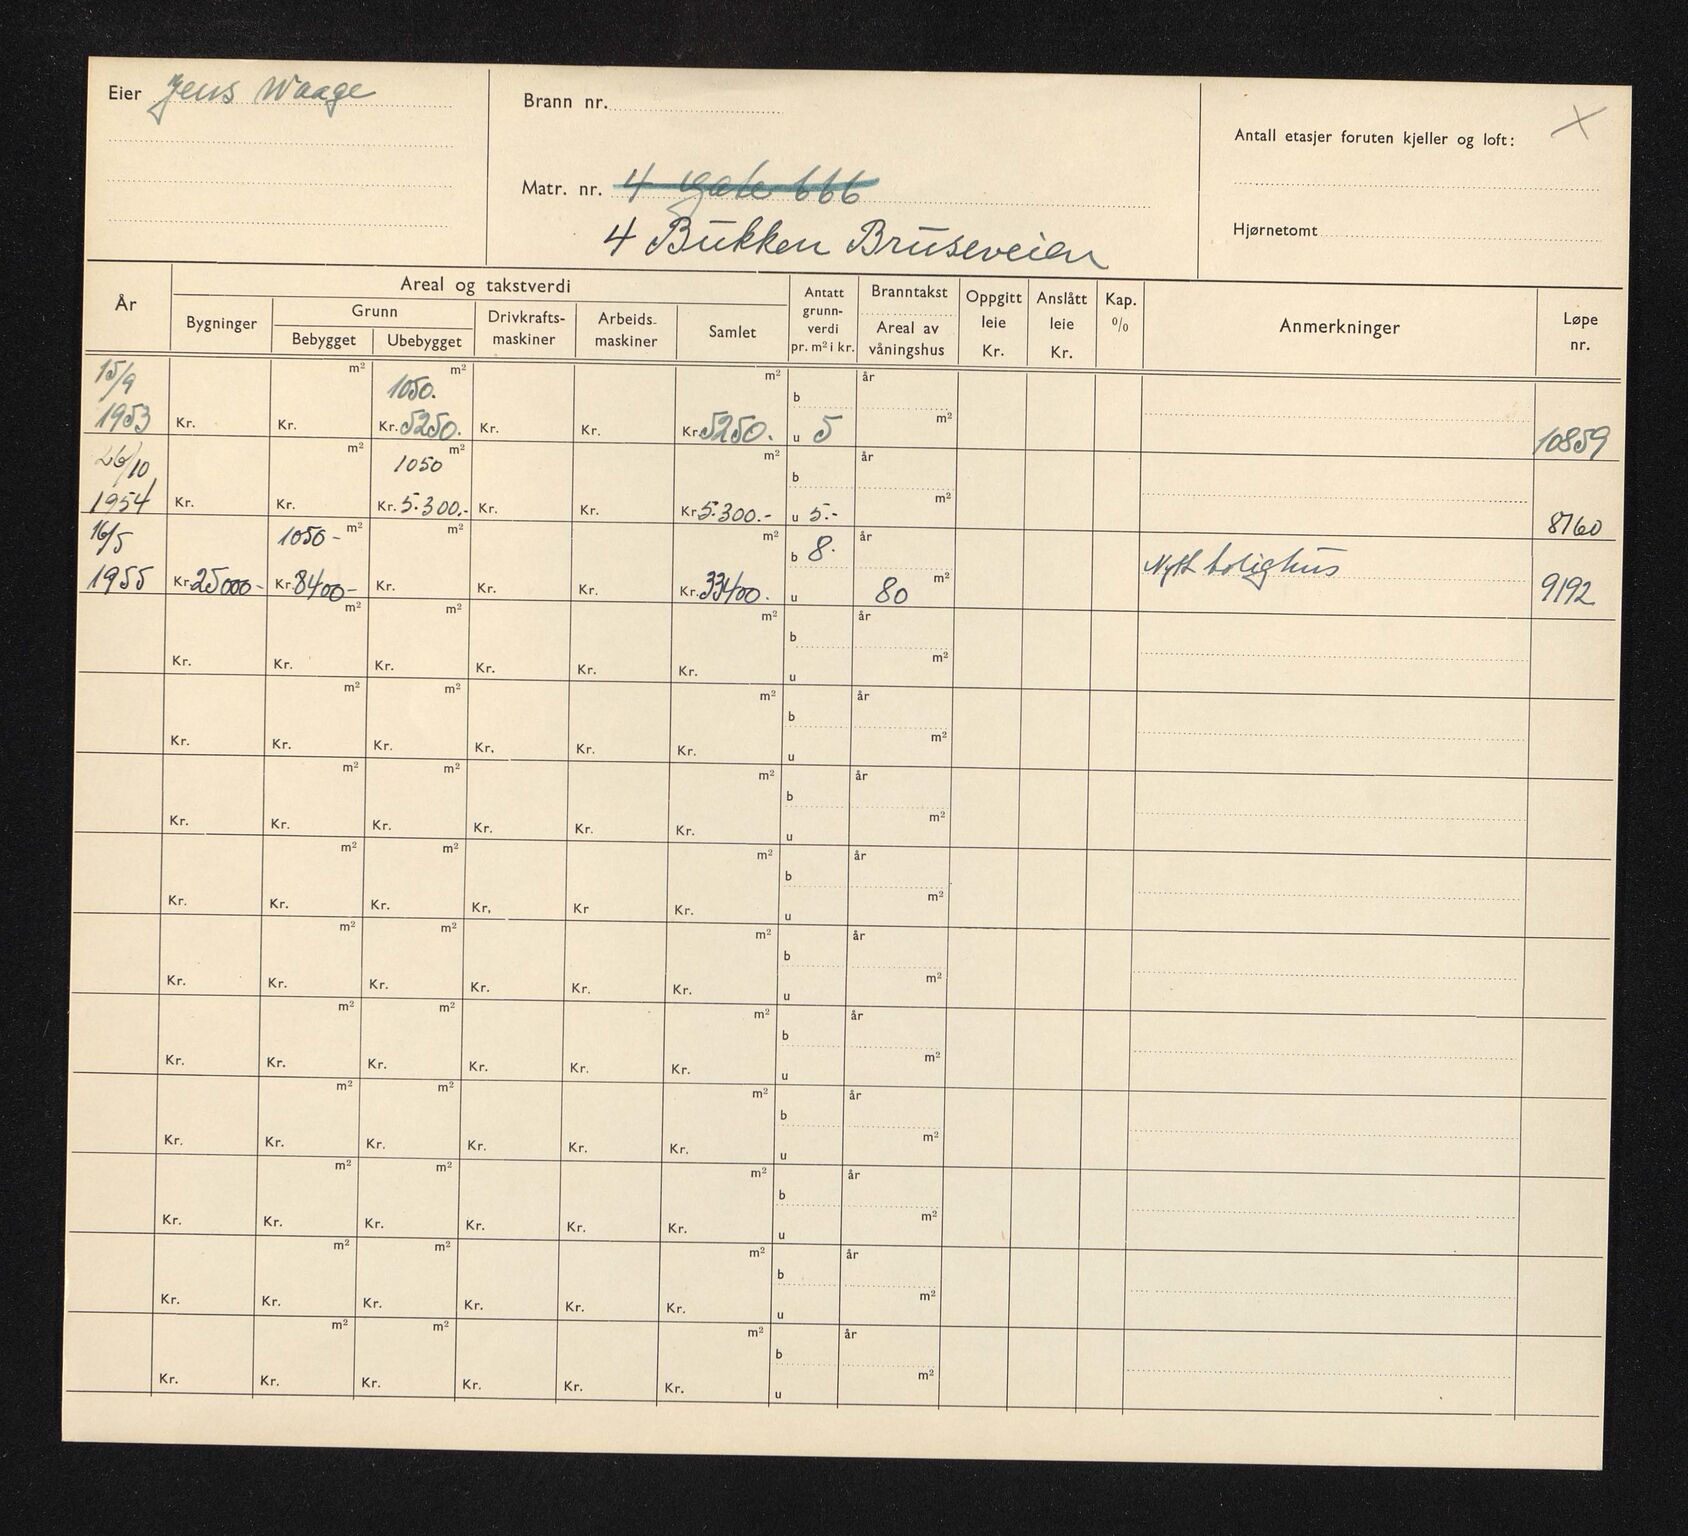 Eier Jens Waage
Brann nr.
Antall etasjer foruten kjeller og loft: X
Matr. nr. 4 gate 666
4 Bukken Bruseveien
Hjørnetomt
År
Areal og takstverdi
Bygninger
Grunn
Bebygget
Ubebygget
Drivkrafts-
maskiner
Arbeids-
maskiner
Samlet
Antatt
grunn-
verdi
pr. m² i kr.
Branntakst
Areal av
våningshus
Oppgitt
leie
Kr.
Anslått
leie
Kr.
Kap.
%
Anmerkninger
Løpe
nr.
15/9 m² 1050. m² m² b år
1953 Kr. Kr. Kr. 5250. Kr. Kr. Kr. 5250. u 5 m² 10859
26/10 m² 1050 m² m² b år
1954 Kr. Kr. Kr. 5.300.- Kr. Kr. Kr. 5.300.- u 5.- m² 8760
16/5 1050 - m² m² m² b 8. år
1955 Kr. 25000- Kr. 8400- Kr. Kr. Kr. Kr. 33400. u 80 m² Nytt bolighus 9192
m² m² m² b år
Kr. Kr. Kr. Kr. Kr. Kr. u m²
m² m² m² b år
Kr. Kr. Kr. Kr. Kr. Kr. u m²
m² m² m² b år
Kr. Kr. Kr. Kr. Kr. Kr. u m²
m² m² m² b år
Kr. Kr. Kr. Kr. Kr Kr. u m²
m² m² m² b år
Kr. Kr. Kr. Kr. Kr. Kr. u m²
m² m² m² b år
Kr. Kr. Kr. Kr. Kr. Kr. u m²
m² m² m² b år
Kr. Kr. Kr. Kr. Kr. Kr. u m²
m² m² m² b år
Kr. Kr. Kr. Kr. Kr. Kr. u m²
m² m² m² b år
Kr. Kr. Kr. Kr. Kr. Kr. u m²
m² m² m² b år
Kr. Kr. Kr. Kr. Kr. Kr. u m²